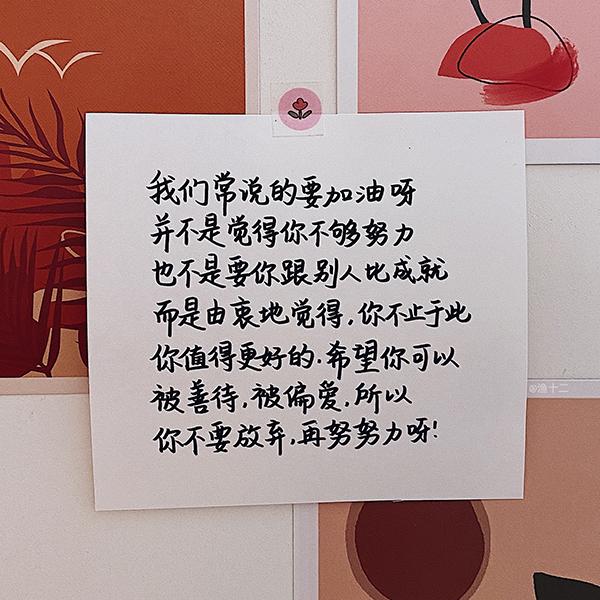 我们常说的要加油呀
并不是觉得你不够努力
也不是要你跟别人比成就
而是由衷地觉得,你不止于此
你值得更好的.希望你可以
被善待,被偏爱,所以
你不要放弃,再努努力呀!
@渔十二